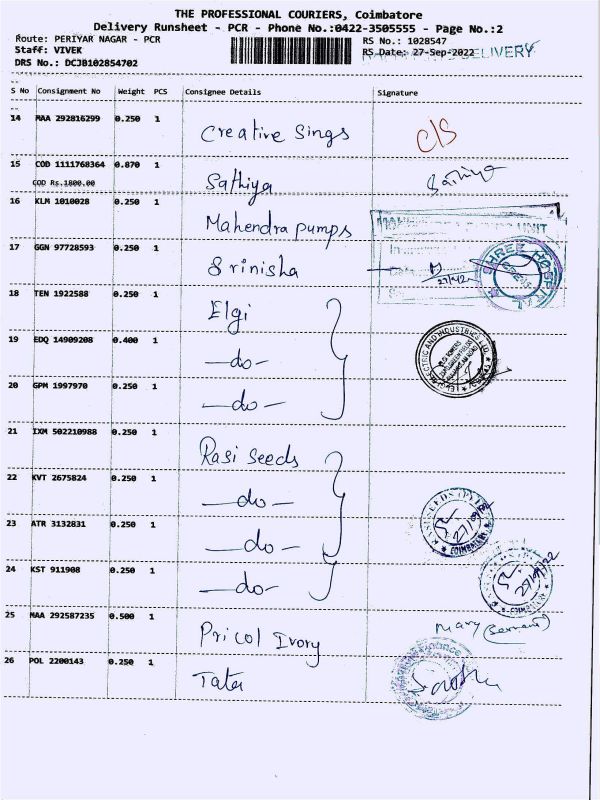 THE PROFESSIONAL COURIERS, Coimbatore
Delivery Runsheet - PCR - Phone No.:0422-3505555 - Page No.:2
Route: PERIYAR NAGAR - PCR
Staff: VIVEK
DRS No.: DCJB102854702
RS No.: 1028547
RS Date: 27-Sep-2022
DELIVERY
S No Consignment No Weight PCS Consignee Details Signature
14 MAA 292816299 0.250 1 Creative Sings C/S
15 COD 1111768364 0.870 1 Sathiya Sathiya
COD Rs.1800.00
16 KLM 1010028 0.250 1 Mahendra pumps
UNIT
17 GGN 97728593 0.250 1 Srinisha
SHREE HOSPITAL
18 TEN 1922588 0.250 1 Elgi
19 EDQ 14909208 0.400 1 -do-
ELECTRIC AND INDUSTRIES LTD.
20 GPM 1997970 0.250 1 -do-
21 IXM 502210988 0.250 1 Rasi Seeds
22 KVT 2675824 0.250 1 -do-
27/09/22
COIMBATORE
23 ATR 3132831 0.250 1 -do-
24 KST 911908 0.250 1 -do-
27/09/22
COIMBATORE
25 MAA 292587235 0.500 1 Pricol Ivory Mary
26 POL 2200143 0.250 1 Tata